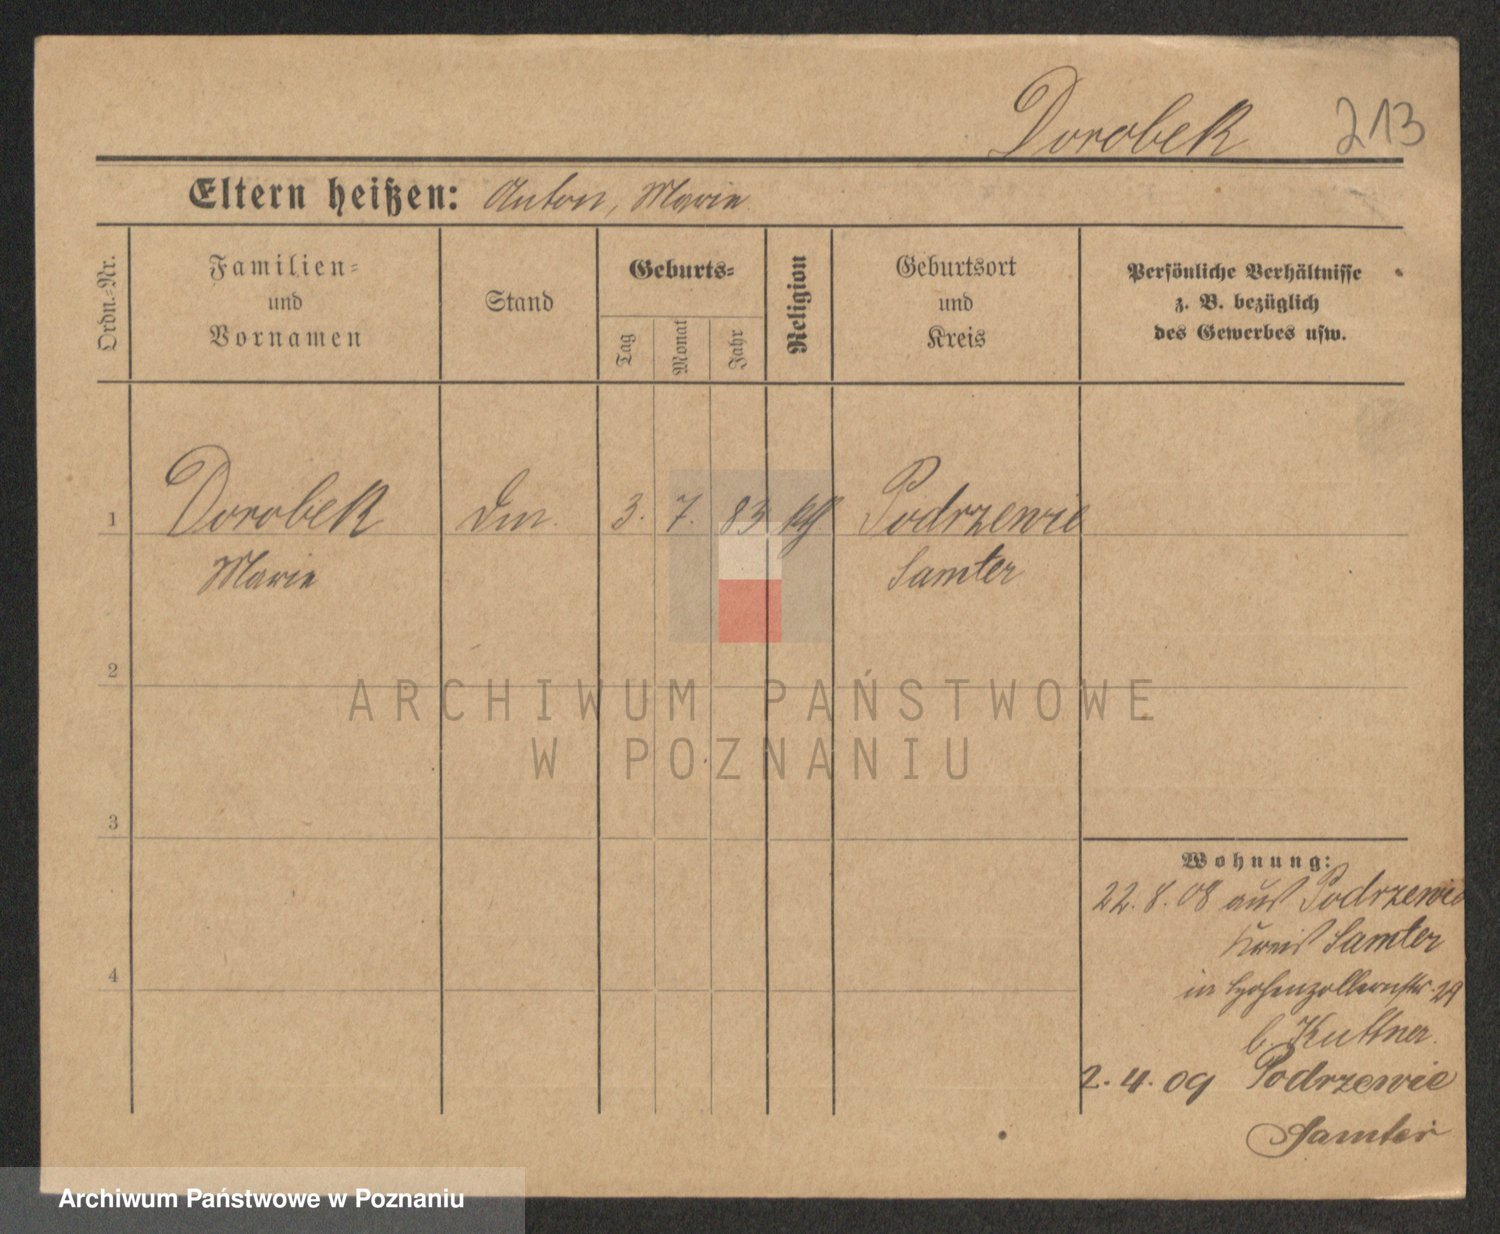 Dorobek 213
Eltern heißen: Anton, Marie
Ordn.-Nr.
Familien-
und
Vornamen
Stand
Geburts-
Tag
Monat
Jahr
Religion
Geburtsort
und
Kreis
Persönliche Verhältnisse
z. B. bezüglich
des Gewerbes usw.
1 Dorobek 3. 7. 83 Podrzewie
Marie Samter
2
3
4
Wohnung:
22. 8. 08 aus Podrzewie
Kreis Samter
in Hohenzollernstr. 29
b. Kuttner.
2. 4. 09 Podrzewie
Samter
ARCHIWUM PAŃSTWOWE
W POZNANIU
Archiwum Państwowe w Poznaniu